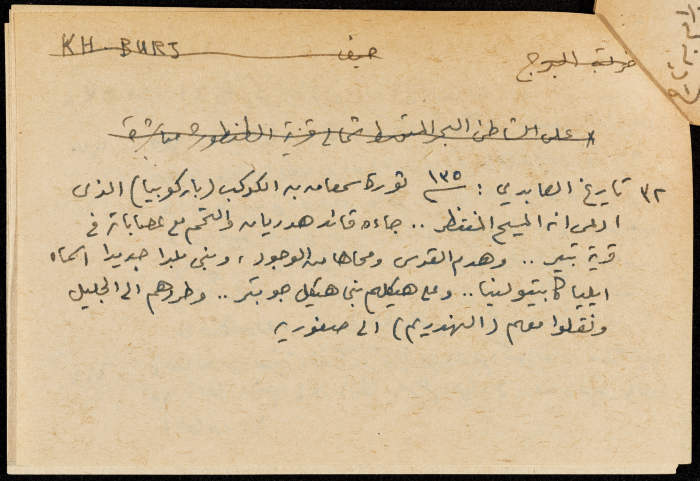 KH. BURJ حيفا خربة البرج
على الشاطئ البحر المتوسط شمالي قرية الطنطورة مباشرة
٣٢ تاريخ العابدي : ١٣٥ م ثورة سمعان بن الكوكب (باركوبيا) الذي
ادعى انه المسيح المنتظر .. جاءه قائد هدريان والتحم مع عصاباته في
قرية بتير .. وهدم القدس ومحاها من الوجود ، وبنى بلدا جديدا اسماه
ايليا كابيتولينا .. ومع هيكلهم بنى هيكل جوبتر .. وطردهم الى الجليل
ونقلوا معهم (السنهدريم) الى صفورية